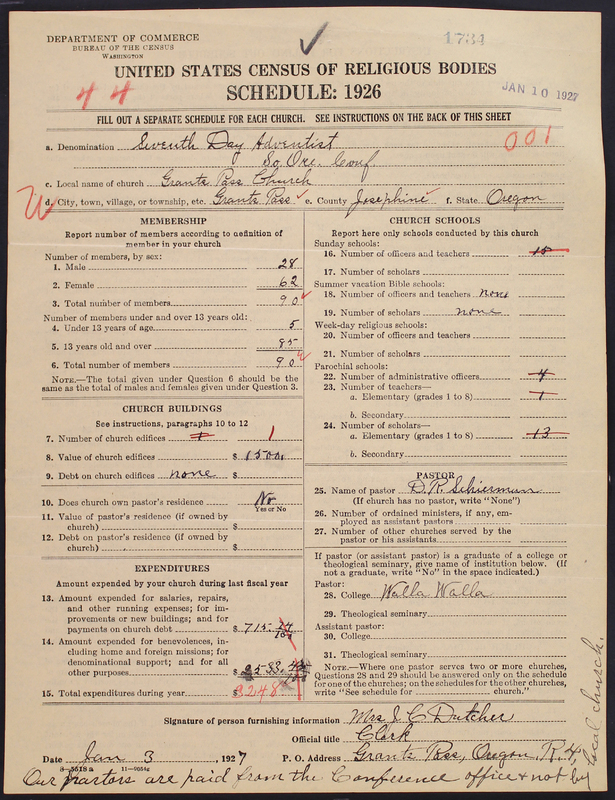 DEPARTMENT OF COMMERCE
BUREAU OF THE CENSUS
WASHINGTON
1734
JAN 10 1927
44
UNITED STATES CENSUS OF RELIGIOUS BODIES
SCHEDULE: 1926
FILL OUT A SEPARATE SCHEDULE FOR EACH CHURCH. SEE INSTRUCTIONS ON THE BACK OF THIS SHEET
001
a. Denomination Seventh Day Adventist
So. Ore. Conf
c. Local name of church Grants Pass Church
W
d. City, town, village, or township, etc. Grants Pass e. County Josephine f. State Oregon
MEMBERSHIP
Report number of members according to definition of
member in your church
Number of members, by sex:
1. Male 28
2. Female 62
3. Total number of members 90
Number of members under and over 13 years old:
4. Under 13 years of age 5
5. 13 years old and over 85
6. Total number of members 90
NOTE.—The total given under Question 6 should be
the same as the total of males and females given under Question 3.
CHURCH BUILDINGS
See instructions, paragraphs 10 to 12
7. Number of church edifices 1 1
8. Value of church edifices $ 1500
9. Debt on church edifices none $
10. Does church own pastor's residence No
Yes or No
11. Value of pastor's residence (if owned by
church) $
12. Debt on pastor's residence (if owned by
church) $
EXPENDITURES
Amount expended by your church during last fiscal year
13. Amount expended for salaries, repairs,
and other running expenses; for im-
provements or new buildings; and for
payments on church debt $ 715
14. Amount expended for benevolences, in-
cluding home and foreign missions; for
denominational support; and for all
other purposes $ 2533
15. Total expenditures during year $ 3248
CHURCH SCHOOLS
Report here only schools conducted by this church
Sunday schools:
16. Number of officers and teachers
17. Number of scholars
Summer vacation Bible schools:
18. Number of officers and teachers none
19. Number of scholars none
Week-day religious schools:
20. Number of officers and teachers
21. Number of scholars
Parochial schools:
22. Number of administrative officers 4
23. Number of teachers—
a. Elementary (grades 1 to 8) 1
b. Secondary
24. Number of scholars—
a. Elementary (grades 1 to 8) 13
b. Secondary
PASTOR
25. Name of pastor D. R. Schierman
(If church has no pastor, write "None")
26. Number of ordained ministers, if any, em-
ployed as assistant pastors
27. Number of other churches served by the
pastor or his assistants
If pastor (or assistant pastor) is a graduate of a college or
theological seminary, give name of institution below. (If
not a graduate, write "No" in the space indicated.)
Pastor:
28. College Walla Walla
29. Theological seminary
Assistant pastor:
30. College
31. Theological seminary
NOTE.—Where one pastor serves two or more churches,
Questions 28 and 29 should be answered only on the schedule
for one of the churches; on the schedules for the other churches,
write "See schedule for church."
Signature of person furnishing information Mrs J C Dutcher
Official title Clerk
Date Jan 3, 1927 P. O. Address Grants Pass, Oregon, R. 4,
8-5518a 11-9054c
Our pastors are paid from the Conference office & not by
local church.